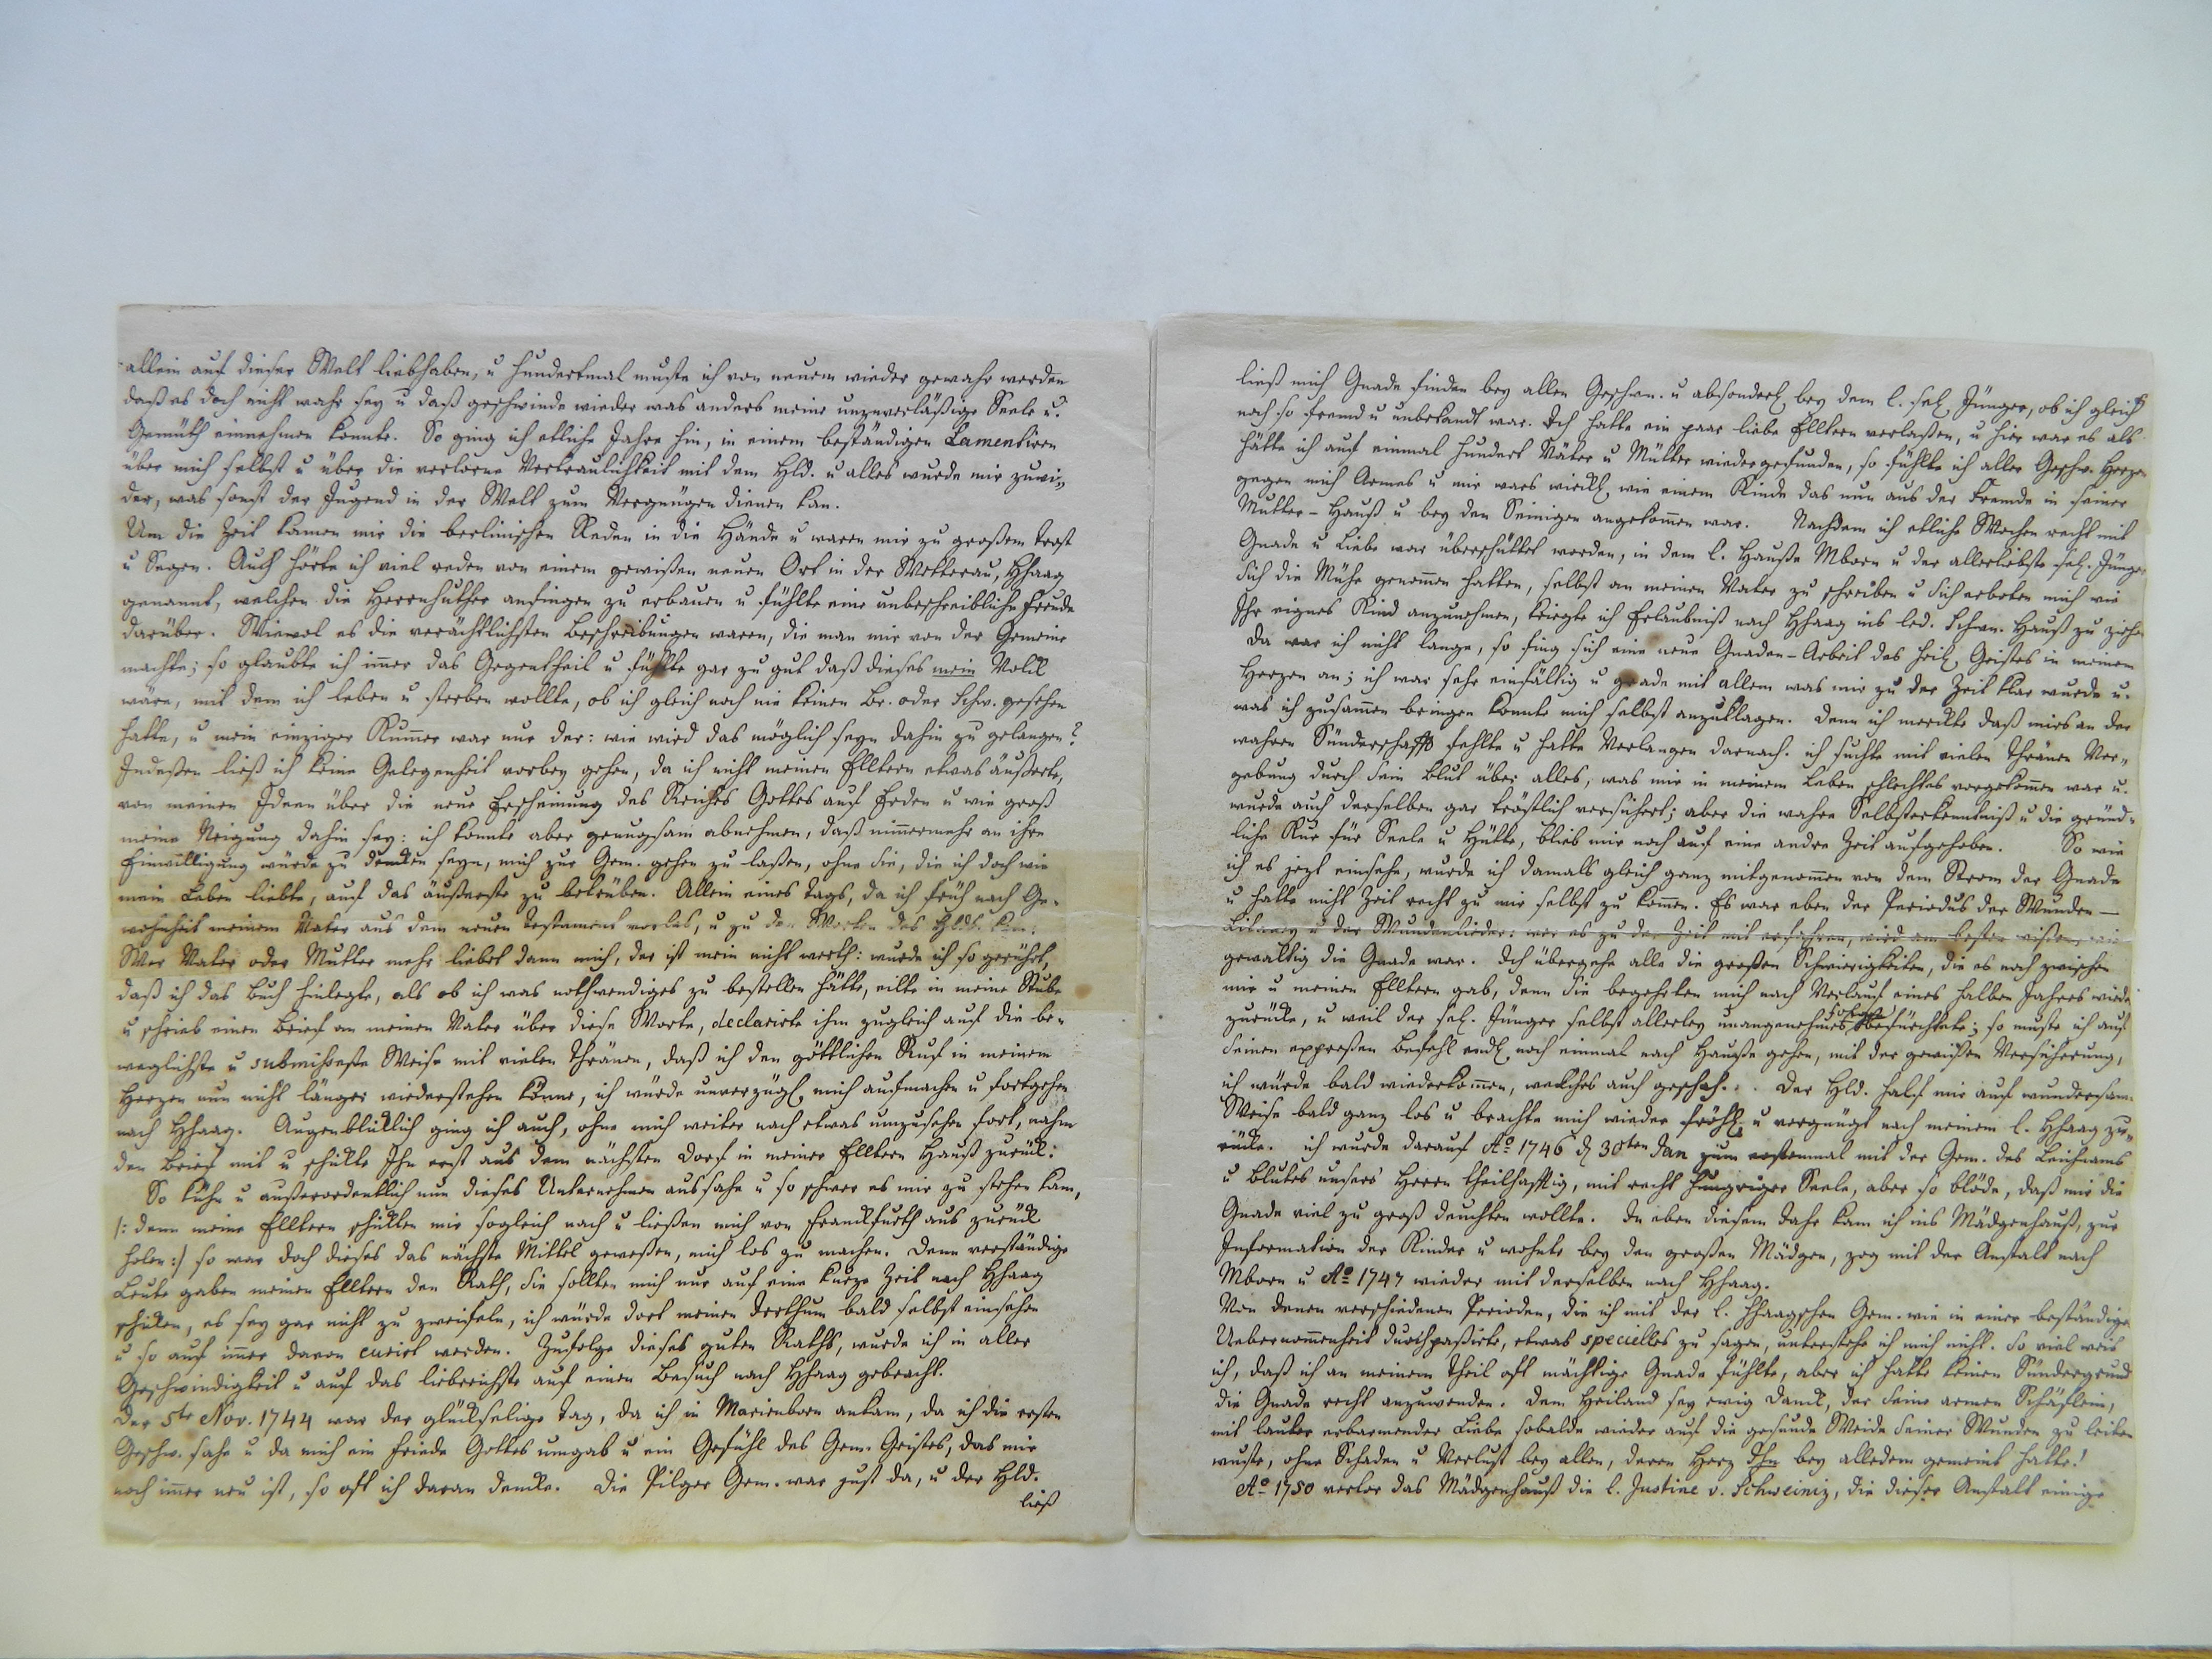 allein auf dieser Welt liebhaben, u hundertmal muste ich von neuem wieder gewahr werden
daß es doch nicht wahr sey u daß geschwinde wieder was anders meine unzuverläßige Seele u.
Gemüth einnehmen konnte. So ging ich etliche Jahre hin, in einem beständigen Lamentiren
über mich selbst u über die verlorne Vertraulichkeit mit dem Hld. u alles wurde mir zuwi„
der, was sonst der Jugend in der Welt zum Vergnügen dienen kan.
Um die Zeit kamen mir die berlinischen Reden in die Hände u waren mir zu großem Trost
u Segen. Auch hörte ich viel reden von einem gewißen neuen Ort in der Wetterau, Hhaag
genannt, welchen die Herrnhuther anfingen zu erbauen u fühlte eine unbeschreibliche Freude
darüber. Wiewol es die verächtlichsten Beschreibungen waren, die man mir von der Gemeine
machte; so glaubte ich imer das Gegentheil u fühlte gar zu gut daß dieses mein Volck
wäre, mit dem ich leben u sterben wollte, ob ich gleich noch nie keinen Br. oder Schw. gesehen
hatte, u mein einziger Kumer war nur der: wie wird das möglich seyn dahin zu gelangen?
Indeßen ließ ich keine Gelegenheit vorbey gehen, da ich nicht meinen Elltern etwas äußerte,
von meinen Ideen über die neue Erscheinung des Reichs Gottes auf Erden u wie groß
meine Neigung dahin sey: ich konnte aber genugsam abnehmen, daß nimermehr an ihre
Einwilligung würde zu dencken seyn, mich zur Gem. gehen zu laßen, ohne Sie, die ich doch wie
mein Leben liebte, auf das äußerste zu betrüben. Allein eines Tags, da ich früh nach Ge-
wohnheit meinem Vater aus dem neuen Testament vorlas, u zu den Worten des Hlds. kam:
Wer Vater oder Mutter mehr liebet dann mich, der ist mein nicht werth: wurde ich so gerührt,
daß ich das Buch hinlegte, als ob ich was nothwendiges zu bestellen hätte, eilte in meine Stube
u schrieb einen Brief an meinen Vater über diese Worte, declarirte ihm zugleich auf die be-
weglichste u submißeste Weise mit vielen Thränen, daß ich den göttlichen Ruf in meinem
Herzen nun nicht länger wiederstehen könne, ich würde unverzügl. mich aufmachen u fortgehen
nach Hhaag. Augenblicklich ging ich auch, ohne mich weiter nach etwas umzusehen fort, nahm
den Brief mit u schickte Ihn erst aus dem nächsten Dorf in meiner Elltern Hauß zurück:
So kühn u außerordentlich nun dieses Unternehmen aussahe u so schwer es mir zu stehen kam,
/: denn meine Elltern schickten mir sogleich nach u ließen mich von Franckfurth aus zurück
holen :/ so war doch dieses das nächste Mittel geweßen, mich los zu machen. Denn verständige
Leute gaben meinen Elltern den Rath, Sie sollten mich nur auf eine kurze Zeit nach Hhaag
schicken, es sey gar nicht zu zweifeln, ich würde dort meinen Irrthum bald selbst einsehen
u so auf imer davon curirt werden. Zufolge dieses guten Raths, wurde ich in aller
Geschwindigkeit u auf das liebreichste auf einen Besuch nach Hhaag gebracht.
Der 5te Nov. 1744 war der glückselige Tag, da ich in Marienborn ankam, da ich die ersten
Geschw. sahe u da mich ein Friede Gottes umgab u ein Gefühl des Gem. Geistes, das mir
noch imer neu ist, so oft ich daran dencke. Die Pilger Gem. war just da, u der Hld.
ließ
ließ mich Gnade finden bey allen Geschw. u absonderl. bey dem l. sel. Jünger, ob ich gleich
noch so fremd u unbekandt war. Ich hatte ein paar liebe Elltern verlaßen, u hier war es als
hätte ich auf einmal hundert Väter u Mütter wiedergefunden, so fühlte ich aller Geschw. Herzen
gegen mich Armes u mir wars wirckl. wie einem Kinde das nun aus der Fremde in seiner
Mutter-Hauß u bey den Seinigen angekomen war. Nachdem ich etliche Wochen recht mit
Gnade u Liebe war überschüttet worden, in dem l. Hauße Mborn u der allerliebste sel. Jünger
Sich die Mühe genomen hatten, selbst an meinen Vater zu schreiben u Sich erboten mich wie
Ihr eignes Kind anzunehmen, kriegte ich Erlaubniß nach Hhaag ins led. Schw. Hauß zu ziehen
Da war ich nicht lange, so fing sich eine neue Gnaden-Arbeit des heil. Geistes in meinem
Herzen an; ich war sehr einfältig u grade mit allem was mir zu der Zeit klar wurde u.
was ich zusamen bringen konnte mich selbst anzuklagen. Denn ich merckte daß mirs an der
wahren Sünderschafft fehlte u hatte Verlangen darnach. ich suchte mit vielen Thränen Ver„
gebung durch Sein Blut über alles, was mir in meinem Leben schlechtes vorgekomen war u.
wurde auch derselben gar tröstlich versichert; aber die wahre Selbsterkenntniß u die gründ-
liche Kur für Seele u Hütte, blieb mir noch auf eine andre Zeit aufgehoben. So wie
ich es jezt einsehe, wurde ich damals gleich ganz mitgenomen von dem Strom der Gnade
u hatte nicht Zeit recht zu mir selbst zu komen. Es war eben der Periodus der Wunden-
Litaney u der Wundenlieder: wer es zu der Zeit mit erfahren, wird am besten wißen, wie
gewaltig die Gnade war. Ich übergehe alle die großen Schwierigkeiten, die es noch zwischen
mir u meinen Elltern gab, denn Sie begehrten mich nach Verlauf eines halben Jahres wieder
zurücke, u weil der sel. Jünger selbst allerley unangenehmes befürchtete; so muste ich auf
Seinen expreßen Befehl endl. noch einmal nach Hauße gehen, mit der gewißen Versicherung,
ich würde bald wiederkomen, welches auch geschah. Der Hld. half mir auf wundersame
Weise bald ganz los u brachte mich wieder fröhl. u vergnügt nach meinem l. Hhaag zu„
rücke. ich wurde darauf Ao 1746 d 30ten Jan zum erstenmal mit der Gem. des Leichnams
u Blutes unsers Herrn theilhafftig, mit recht hungriger Seele, aber so blöde, daß mir die
Gnade viel zu groß deuchten wollte. In eben diesem Jahr kam ich ins Mädgenhauß, zur
Information der Kinder u wohnte bey den großen Mädgen, zog mit der Anstalt nach
Mborn u Ao 1747 wieder mit derselben nach Hhaag.
Von denen verschiedenen Perioden, die ich mit der l. Hhaagschen Gem. wie in einer beständigen
Uebernomenheit durchpaßirte, etwas specielles zu sagen, unterstehe ich mich nicht. So viel weis
ich, daß ich an meinem Theil oft mächtige Gnade fühlte, aber ich hatte keinen Sündergrund
die Gnade recht anzuwenden. Dem Heiland sey ewig Danck, der Seine armen Schäflein,
mit lauter erbarmender Liebe sobalde wieder auf die gesunde Weide Seiner Wunden zu leiten
wuste, ohne Schaden u Verlust bey allen, deren Herz Ihn bey alledem gemeint hatte!
Ao 1750 verlor das Mädgenhauß die l. Justine v. Schweiniz, die dieser Anstalt einige